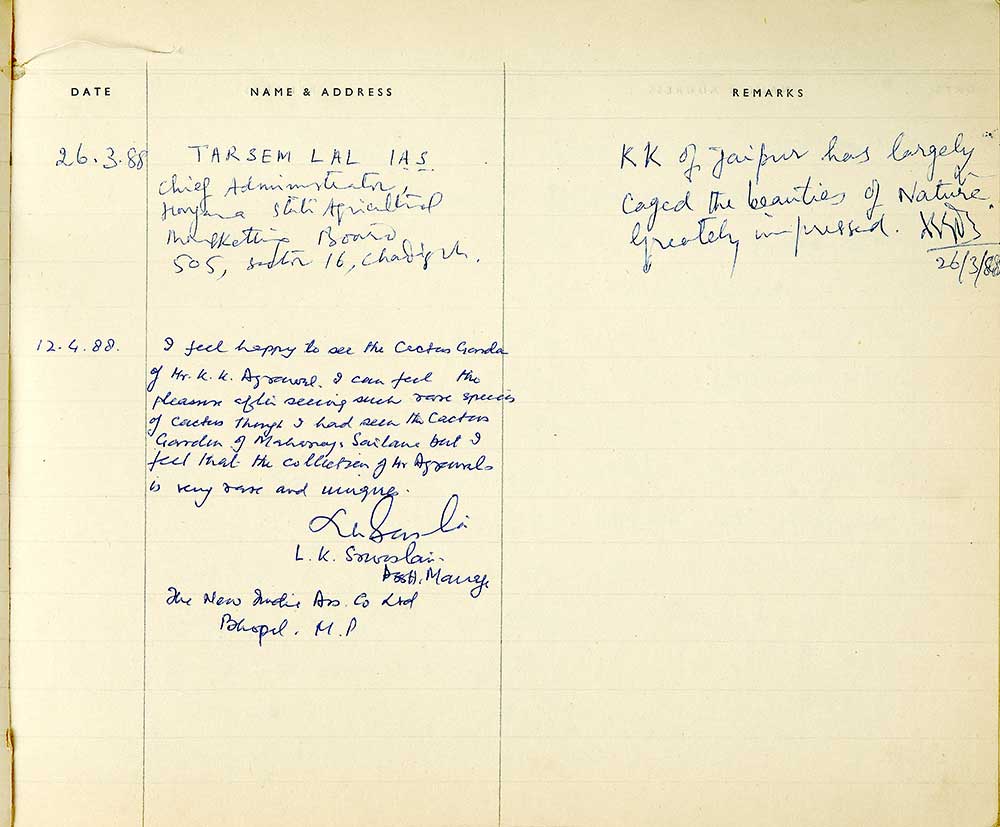 DATE NAME & ADDRESS REMARKS
26.3.88 TARSEM LAL IAS
Chief Administrator,
Haryana State Agricultural
Marketing Board
505, sector 16, Chadigrh.
KK of Jaipur has largely
Caged the beauties of Nature.
Greately impressed.
26/3/88
12.4.88. I feel happy to see the Cactus Garden
of Mr. K.K. Agrawal. I can feel the
pleasure after seeing such rare species
of cactus though I had seen the Cactus
Garden of Maharaja Sailana but I
feel that the collection of Mr Agrawals
is very rare and unique.
L. K.
Asstt. Manager
The New India Ass. Co Ltd
Bhopal. M.P